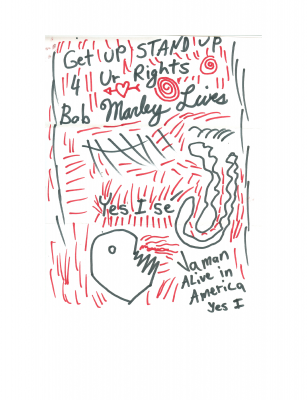 Get UP STAND UP
4 Ur Rights
Bob Marley Lives
Yes I se
Ya man
ALive in
America
Yes I